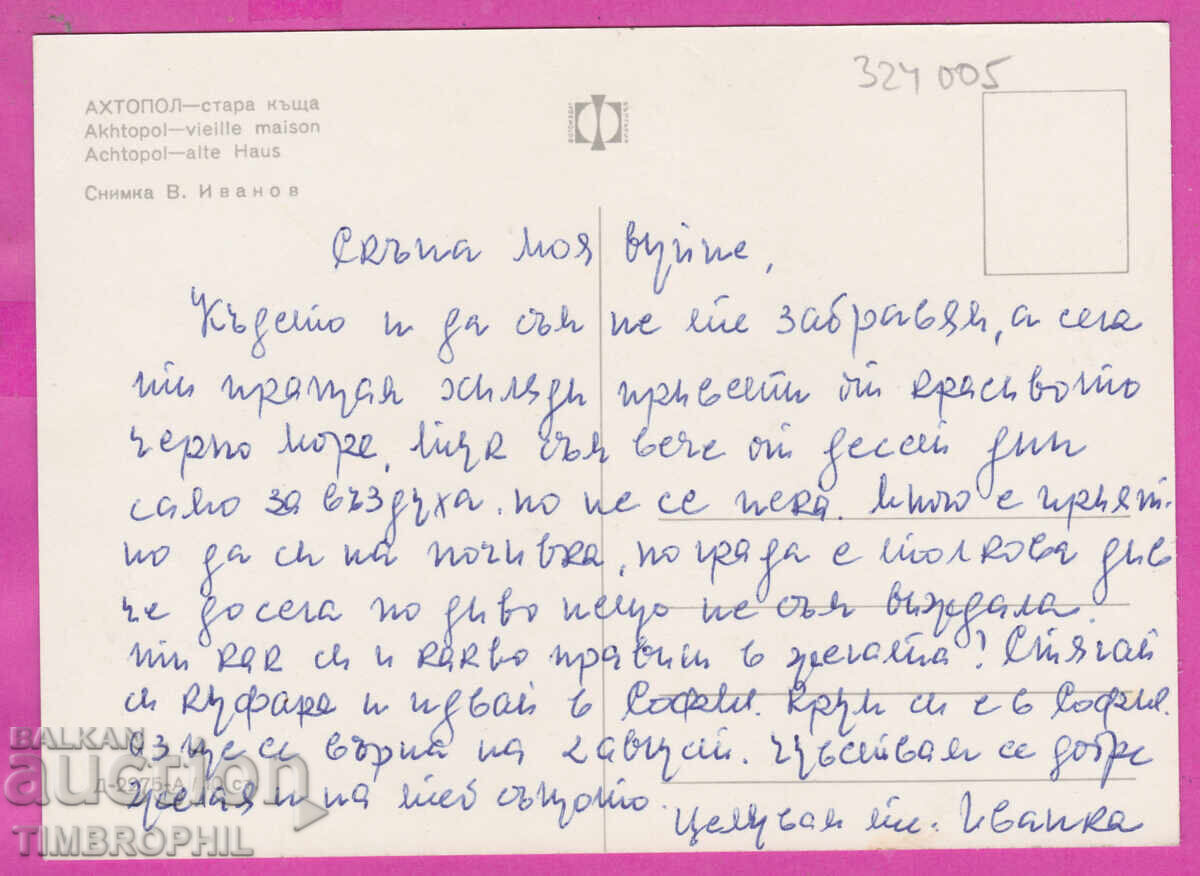 324005
АХТОПОЛ—стара къща
Akhtopol—vieille maison
Achtopol—alte Haus
Снимка В. Иванов
Скъпа моя вуйне,
Където и да съм не те забравям, а сега
ти пращам хиляди привети от красивото
черно море. Тук съм вече от десет дни
само за въздуха, но не се пека. Много е прият-
но да си на почивка, но града е толкова див
че досега по диво нещо не съм виждала.
Ти как си и какво правиш в жегата? Стягай
си куфара и идвай в София. Крум си е в София.
Аз ще се върна на 2 август. Чувствам се добре
желая и на теб същото.
Целувам те. Иванка
Д-2975-А
BALKAN
auction
TIMBROPHIL